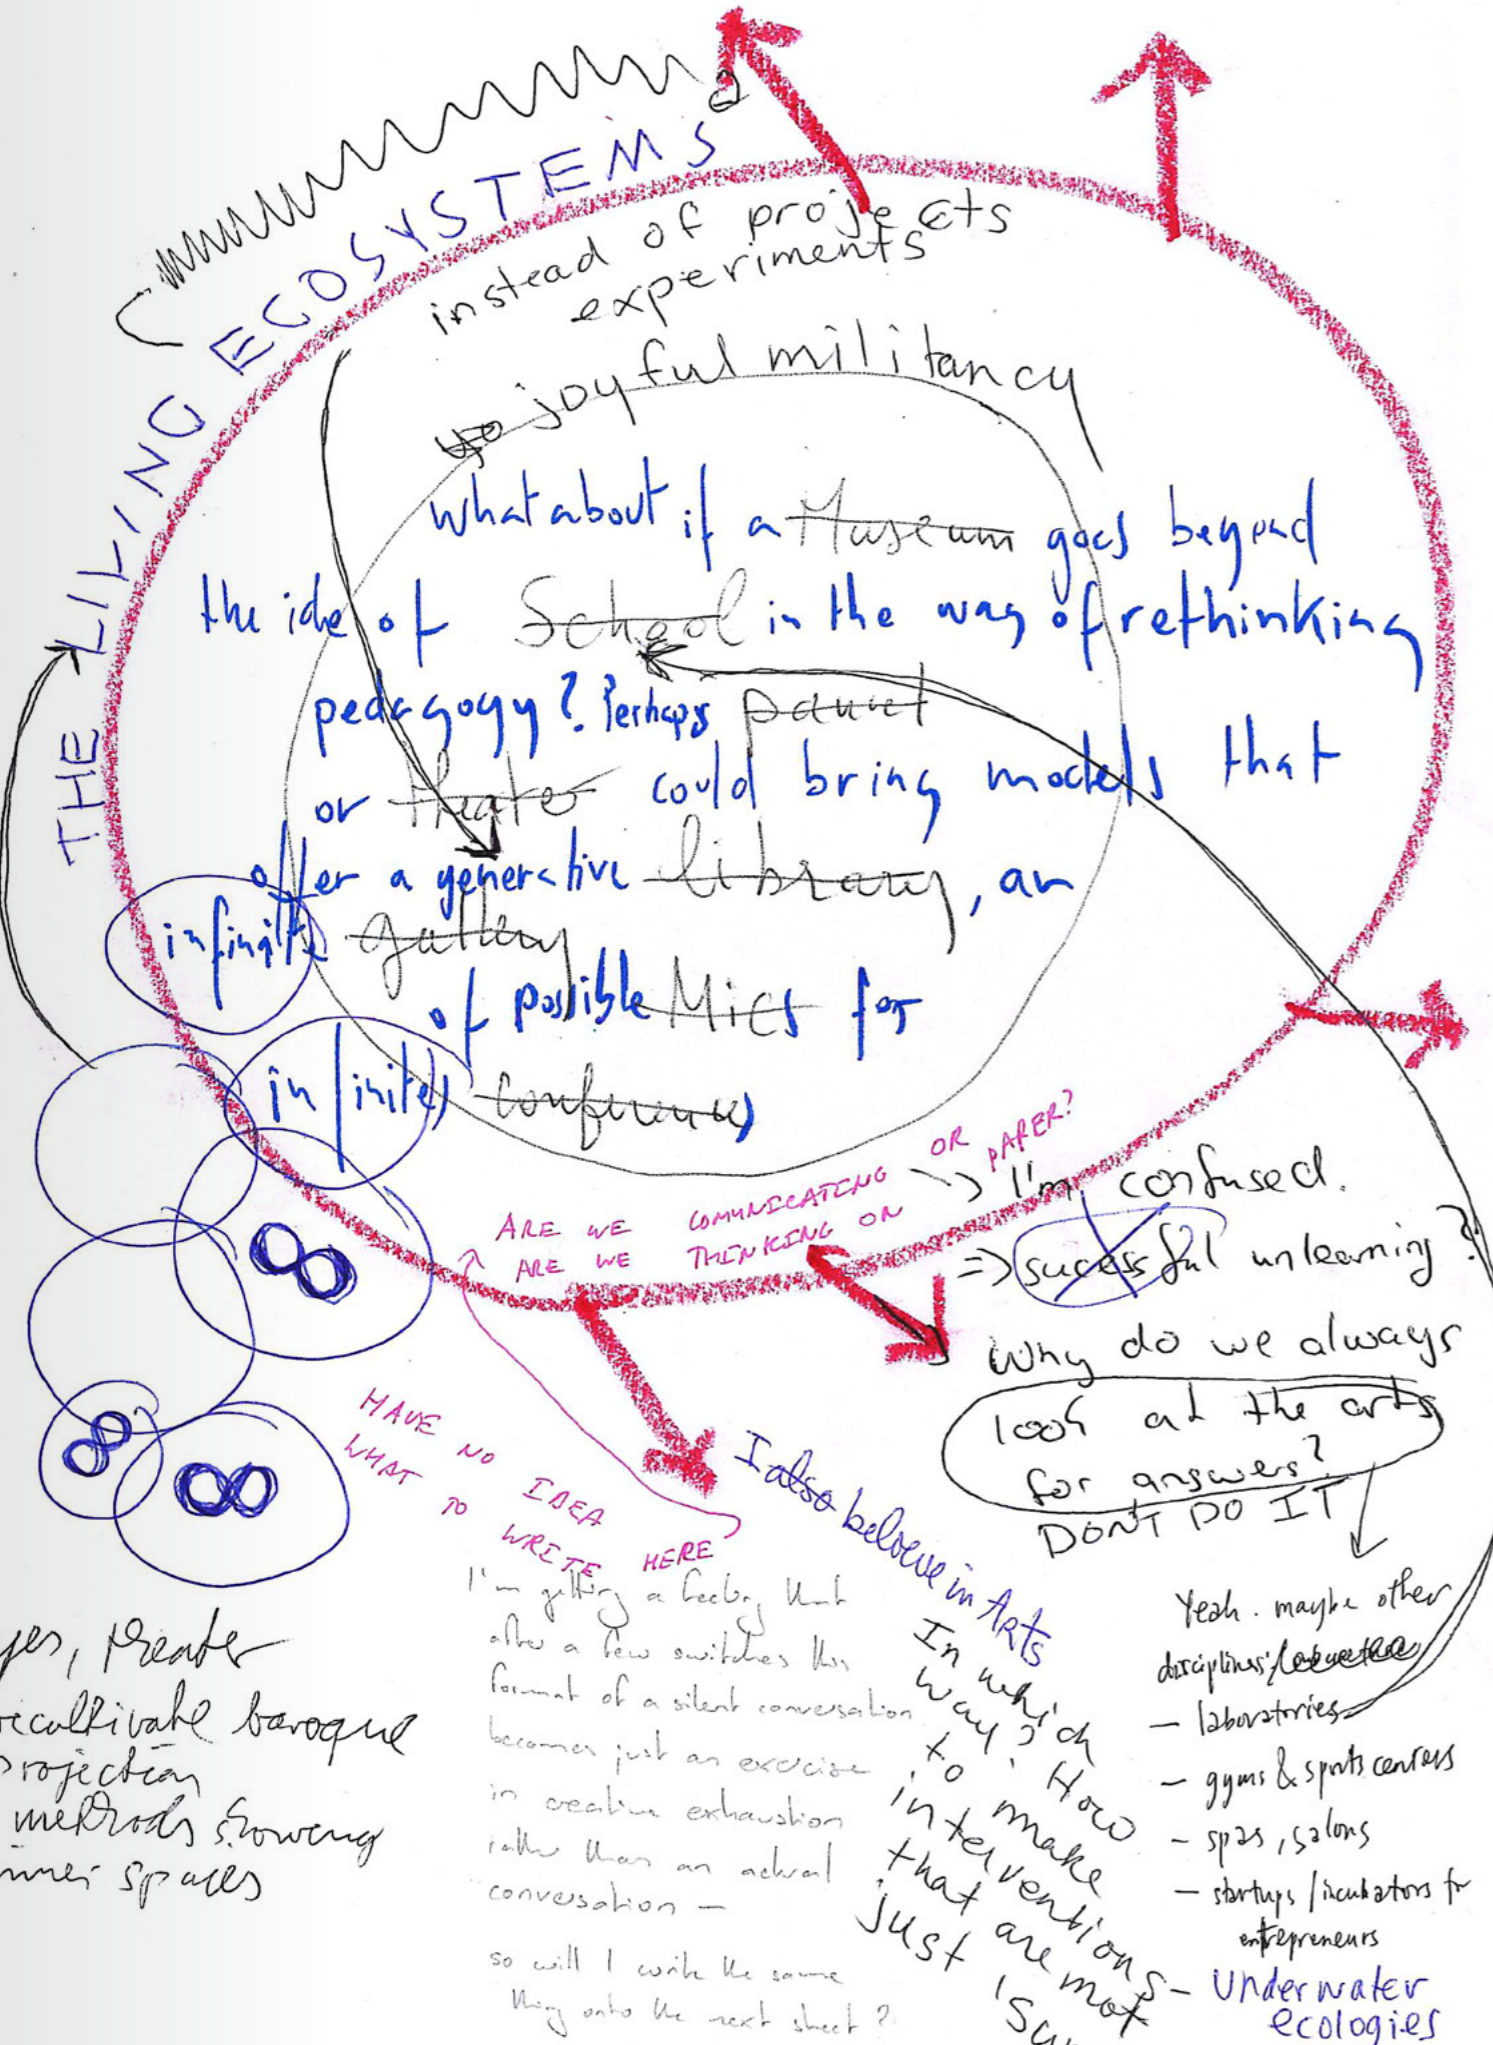 THE LIVING ECOSYSTEMS
instead of projects
experiments
joyful militancy
what about if a Museum goes beyond
the ide of School in the way of rethinking
pedagogy? Perhaps
or theater could bring models that
offer a generative library, an
infinite gallery
of possible Mics for
infinites conferences
ARE WE COMUNICATING OR
ARE WE THINKING ON PAPER?
I'm confused.
=> sucessful unlearning?
Why do we always
look at the arts
for answers?
DON'T DO IT
HAVE NO IDEA
WHAT TO WRITE HERE
I also beloeve in Arts
In which
way? How
to make
interventions
that are not
just
Yeah. maybe other
disciplines
- laboratories
- gyms & sports centers
- spas, salons
- startups / incubators for
entrepreneurs
- Underwater
ecologies
I'm getting a feeling that
after a few switches this
format of a silent conversation
becomes just an exercise
in creative exhaustion
rather than an actual
conversation -
so will I write the same
thing onto the next sheet?
yes, theater
recultivate baroque
projection
methods showing
inner spaces
∞
∞
∞